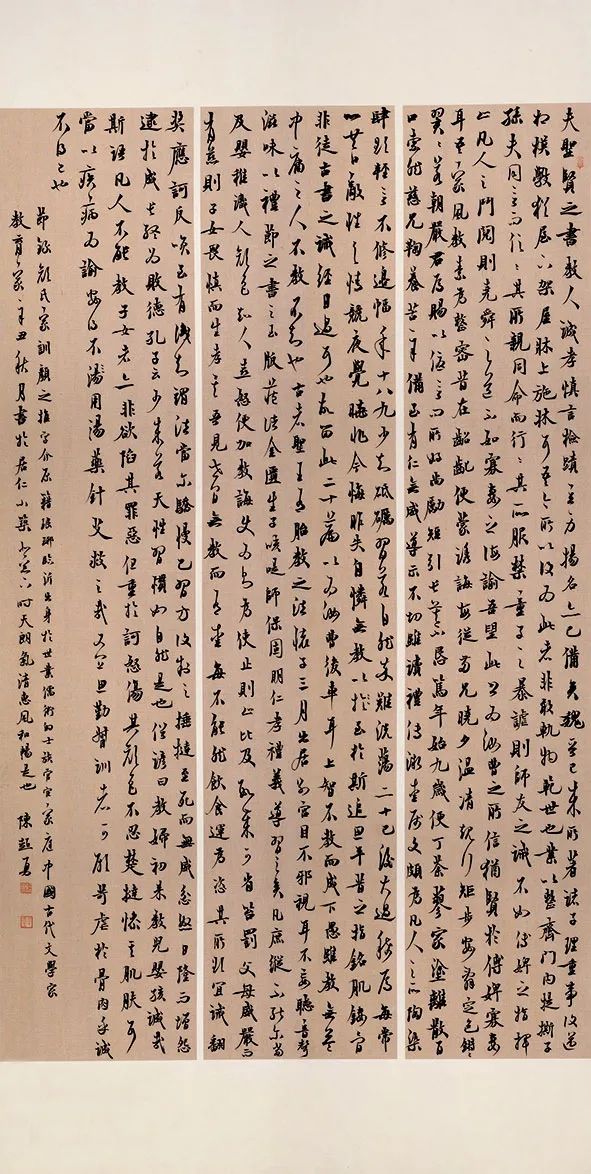 夫聖賢之書教人誠孝慎言檢蹟立身揚名亦已備矣魏晉已來所著諸子理重事複遞
相模斆猶屋下架屋牀上施牀耳吾今所以復為此者非敢軌物範世也業以整齊門內提撕子
孫夫同言而信信其所親同命而行行其所服禁童子之暴謔則師友之誡不如傅婢之指揮
止凡人之鬥鬩則堯舜之道不如寡妻之誨諭吾望此書為汝曹之所信猶賢於傅婢寡妻
耳吾家風教素為整密昔在齠齔便蒙誘誨每從兩兄曉夕溫凊規行矩步安辭定色鏘鏘
翼翼若朝嚴君焉賜以優言問所好尚勵短引長莫不懇篤年始九歲便丁荼蓼家塗離散百
口索然慈兄鞠養苦辛備至有仁無威導示不切雖讀禮傳微愛屬文頗為凡人之所陶染
肆欲輕言不修邊幅年十八九少知砥礪習若自然卒難洗盪二十已後大過稀焉每常
心共口敵性與情競夜覺曉非今悔昨失自憐無教以至於斯追思平昔之指銘肌鏤骨
非徒古書之誡經目過耳也故留此二十篇以為汝曹後車耳上智不教而成下愚雖教無益
中庸之人不教不知也古者聖王有胎教之法懷子三月出居別宮目不邪視耳不妄聽音聲
滋味以禮節之書之玉版藏諸金匱生子咳㖷師保固明仁孝禮義導習之矣凡庶縱不能爾當
及嬰稚識人顏色知人喜怒便加教誨使為則為使止則止比及數歲可省笞罰父母威嚴而
有慈則子女畏慎而生孝矣吾見世間無教而有愛每不能然飲食運為恣其所欲宜誡翻
獎應訶反笑至有識知謂法當爾驕慢已習方復制之捶撻至死而無威忿怒日隆而增怨
逮於成長終為敗德孔子云少成若天性習慣如自然是也俗諺曰教婦初來教兒嬰孩誠哉
斯語凡人不能教子女者亦非欲陷其罪惡但重於訶怒傷其顏色不忍楚撻慘其肌膚耳
當以疾病為諭安得不用湯藥針艾救之哉又宜思勤督訓者可願苛虐於骨肉乎誠
不得已也
節錄顏氏家訓顏之推字介原籍琅琊臨沂出身於世業儒術的士族官宦之家庭中國古代文學家
教育家辛丑秋月書於居仁小築時天朗氣清惠風和暢是也 陳超